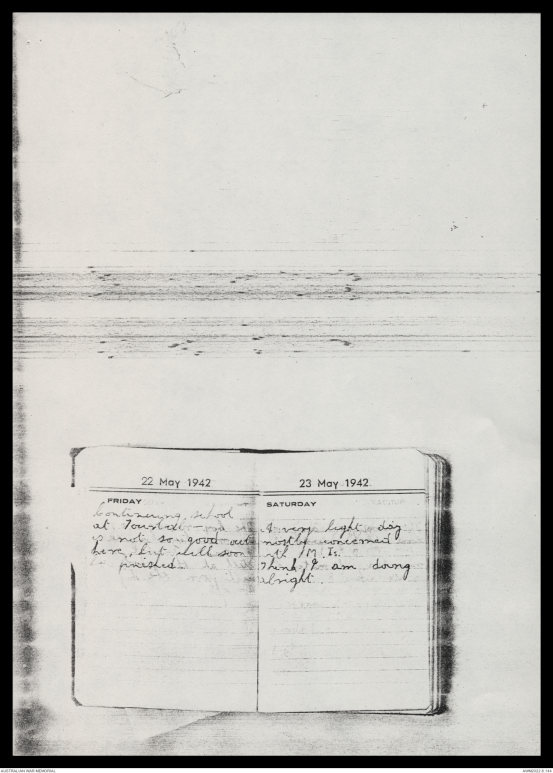 22 May 1942
FRIDAY
Continuing school
at
is not so good out
here, but will soon
be finished.
23 May 1942
SATURDAY
A very light day
mostly concerned
with M.Is.
Think I am doing
alright.
AUSTRALIAN WAR MEMORIAL